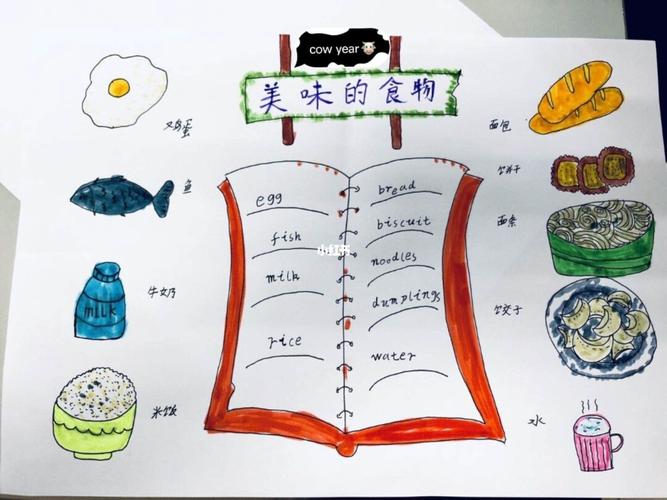 cow year 🐮
美味的食物
鸡蛋
鱼
牛奶
milk
米饭
egg
fish
milk
rice
小红书
bread
biscuit
noodles
dumplings
water
面包
饼干
面条
饺子
水